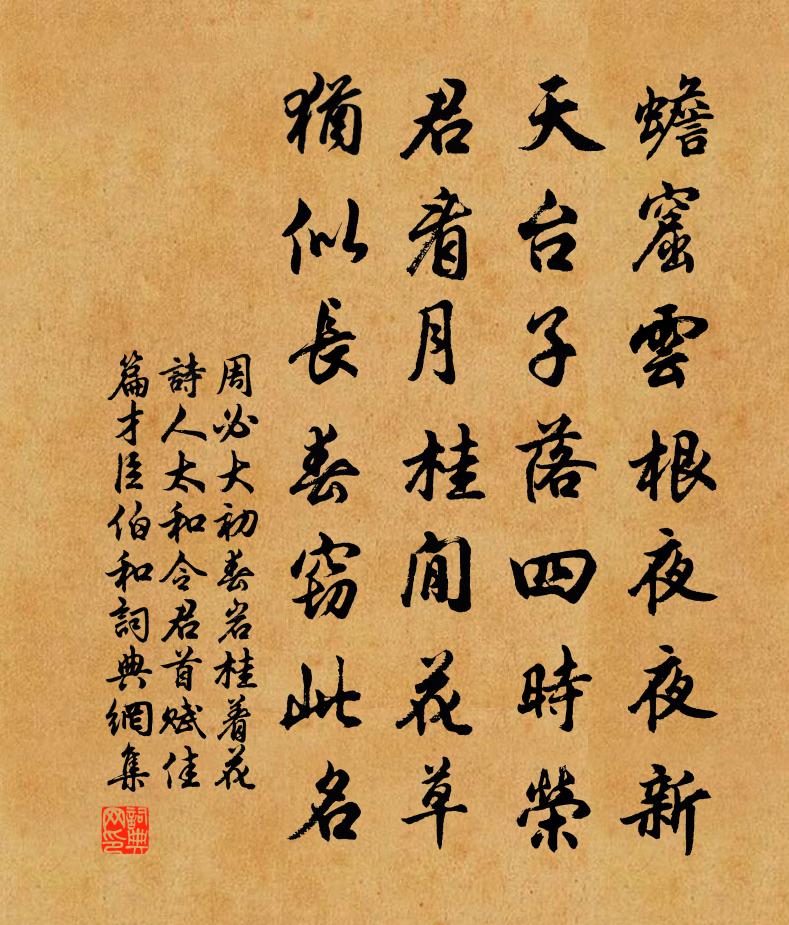 蟾窟雲根夜夜新
天台子落四時榮
君看月桂閒花草
猶似長春竊此名
周必大初春岩桂着花
詩人太和令君首赋佳
篇才臣伯和詞典網集
詞典网印